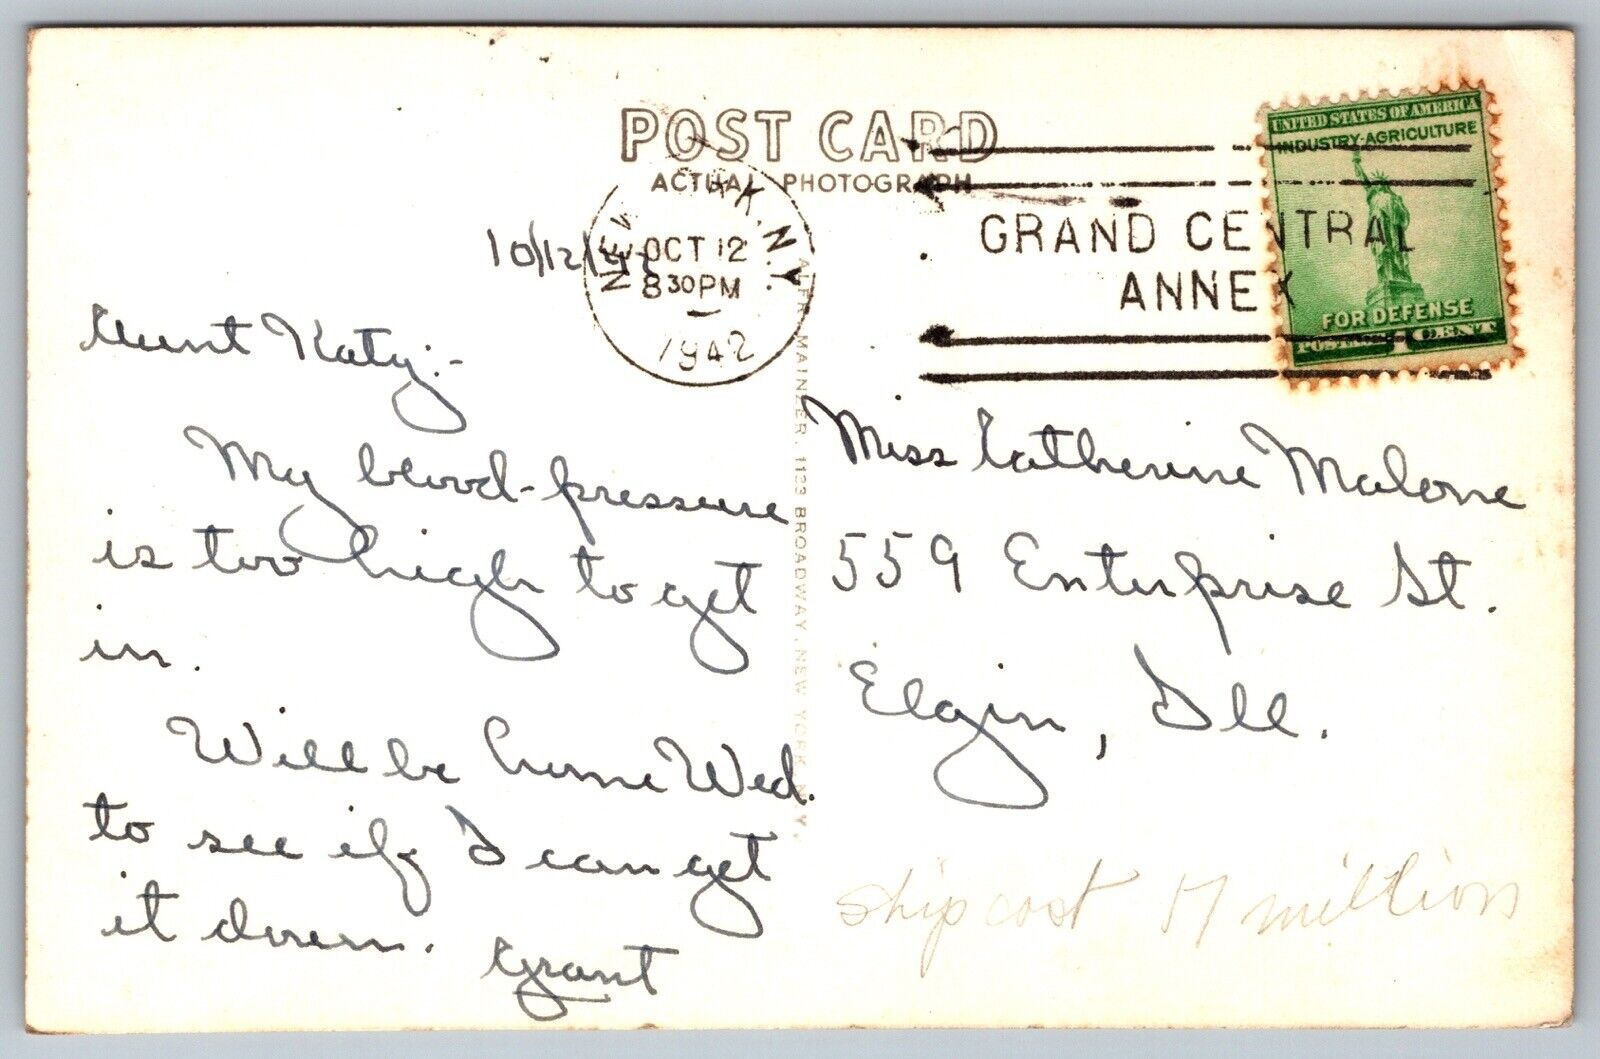 POST CARD
ACTUAL PHOTOGRAPH
NEW YORK, N.Y.
OCT 12
8 30 PM
1942
GRAND CENTRAL
ANNEX
UNITED STATES OF AMERICA
INDUSTRY·AGRICULTURE
FOR DEFENSE
POSTAGE 1 CENT
10/12/42
Aunt Katy:-
My blood-pressure
is too high to get
in.
Will be home Wed.
to see if I can get
it down.
Grant
ALFRED MAINZER, 1123 BROADWAY, NEW YORK, N.Y.
Miss Catherine Malone
559 Enterprise St.
Elgin, Ill.
ship cost 51 million